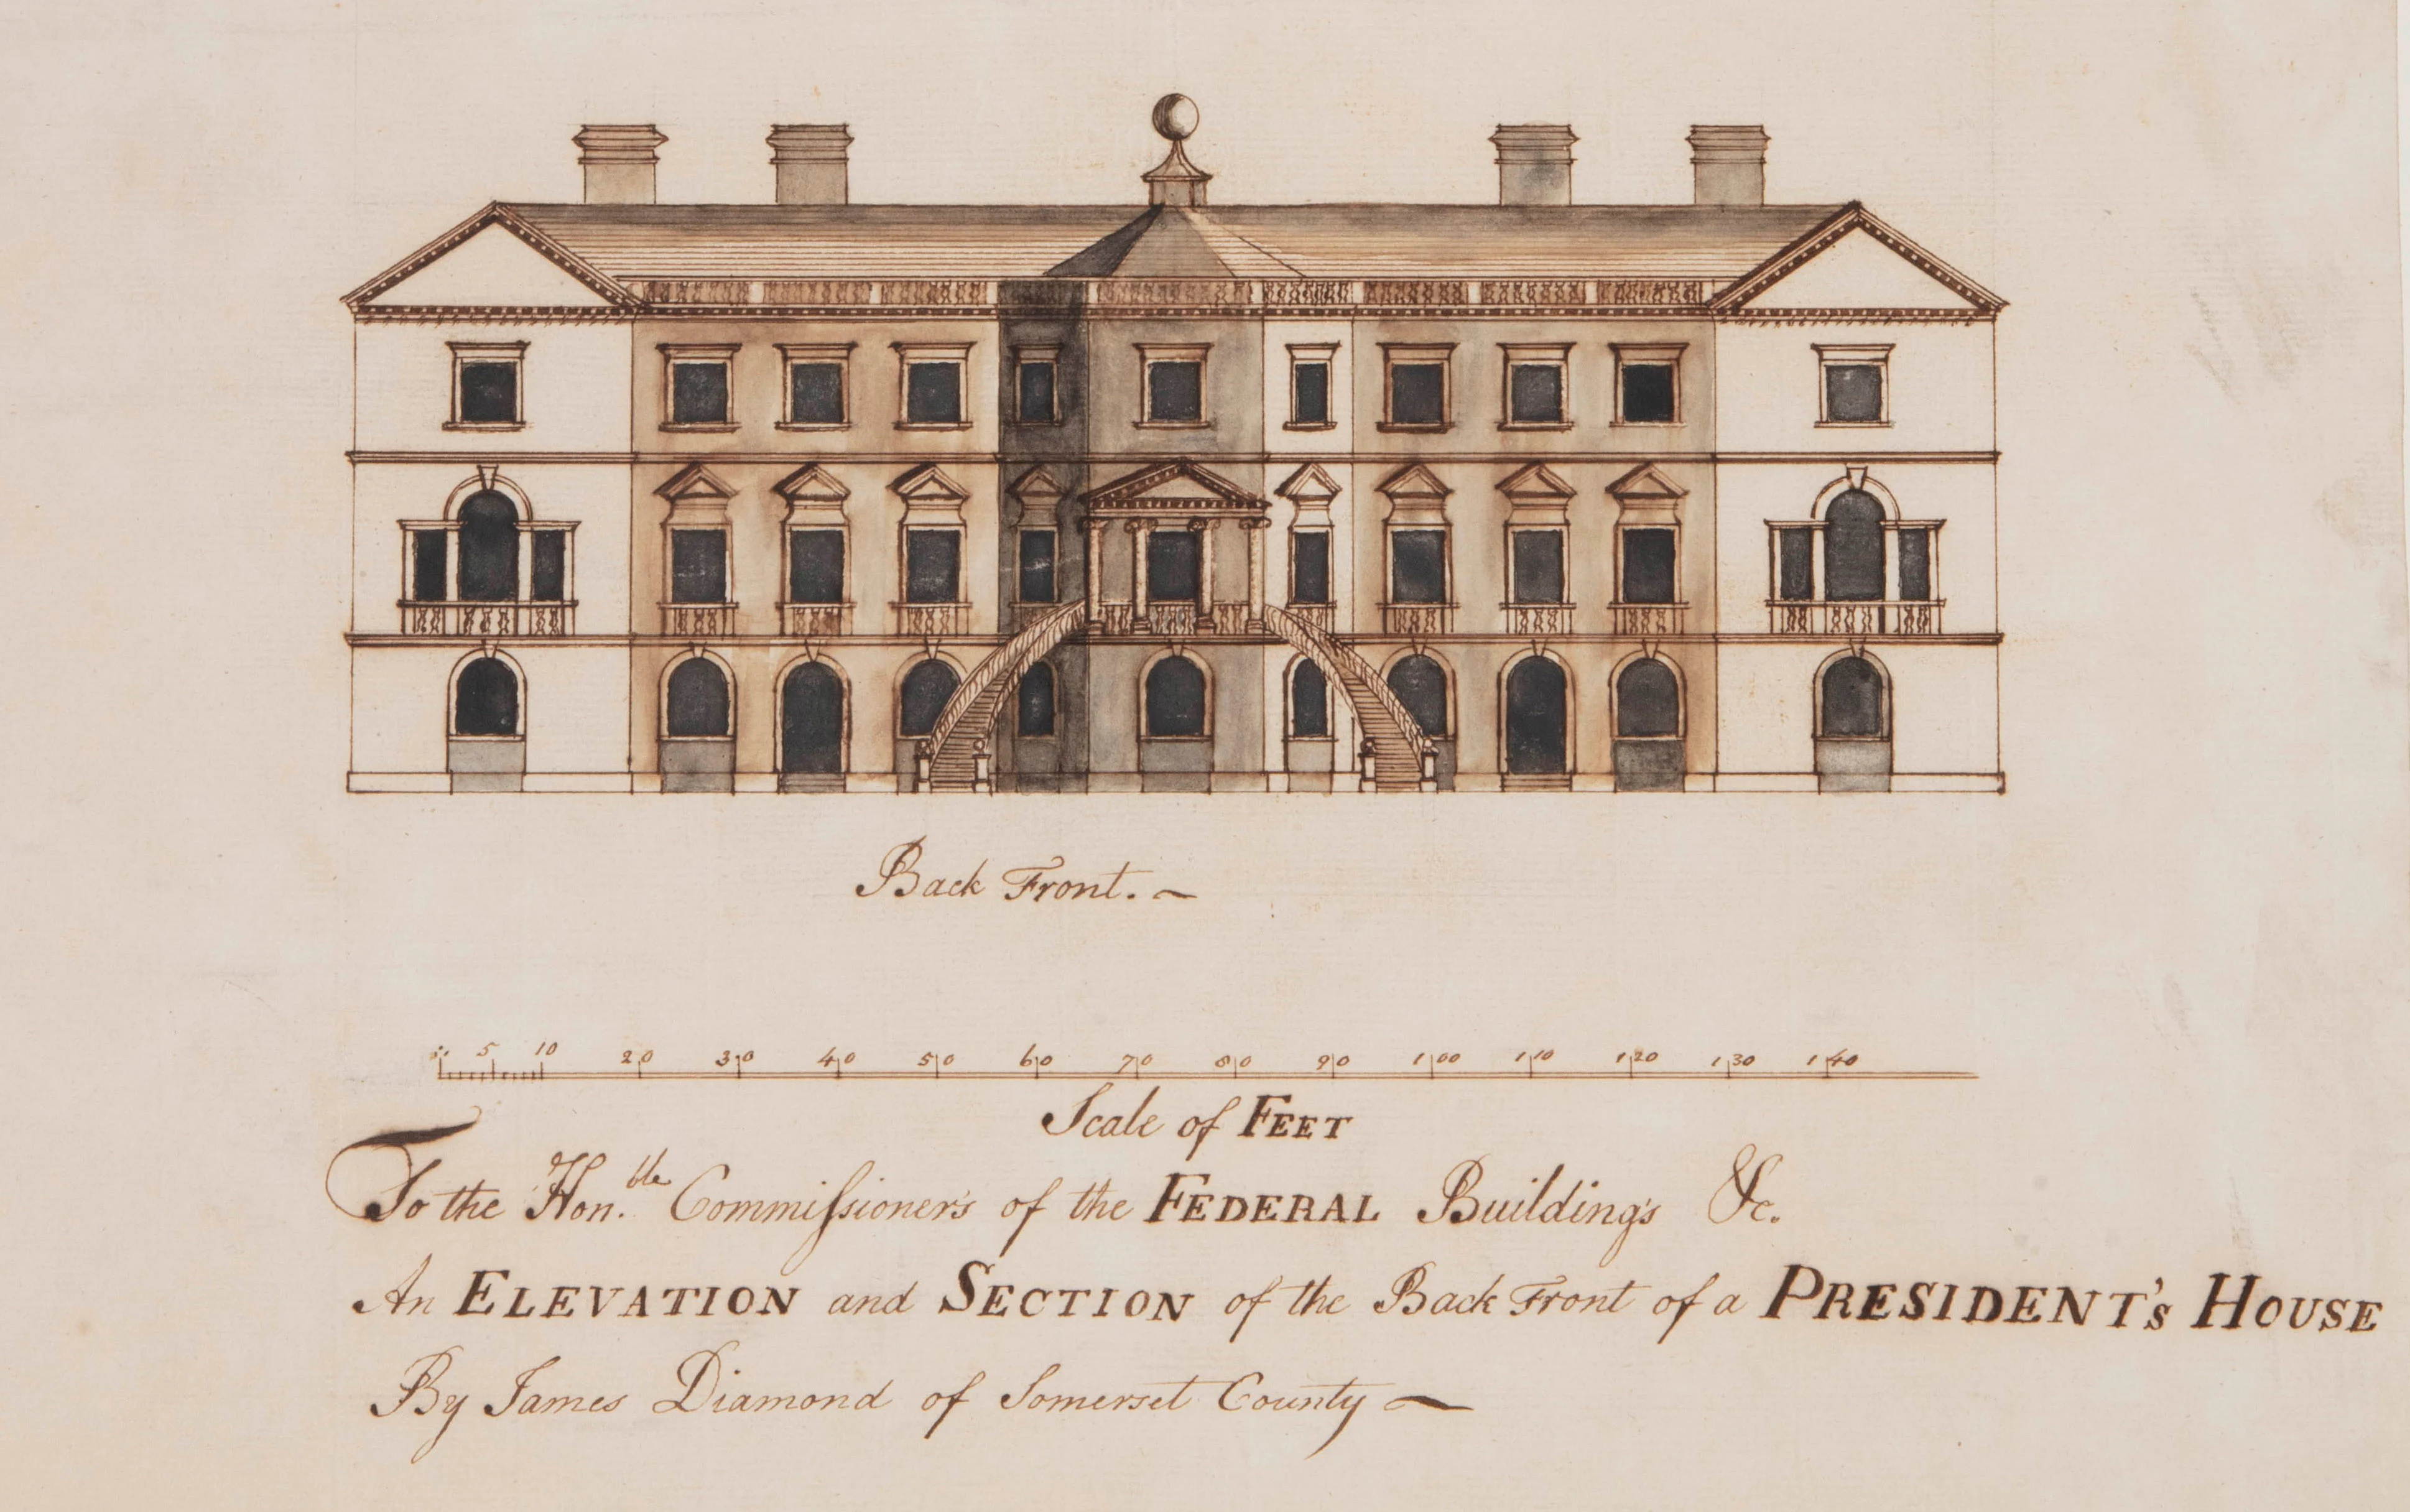 Back Front.
5 10 20 30 40 50 60 70 80 90 100 110 120 130 140
Scale of FEET
To the Hon.ble Commiſsioner's of the FEDERAL Building's &c.
An ELEVATION and SECTION of the Back Front of a PRESIDENT's HOUSE
By James Diamond of Somerset County